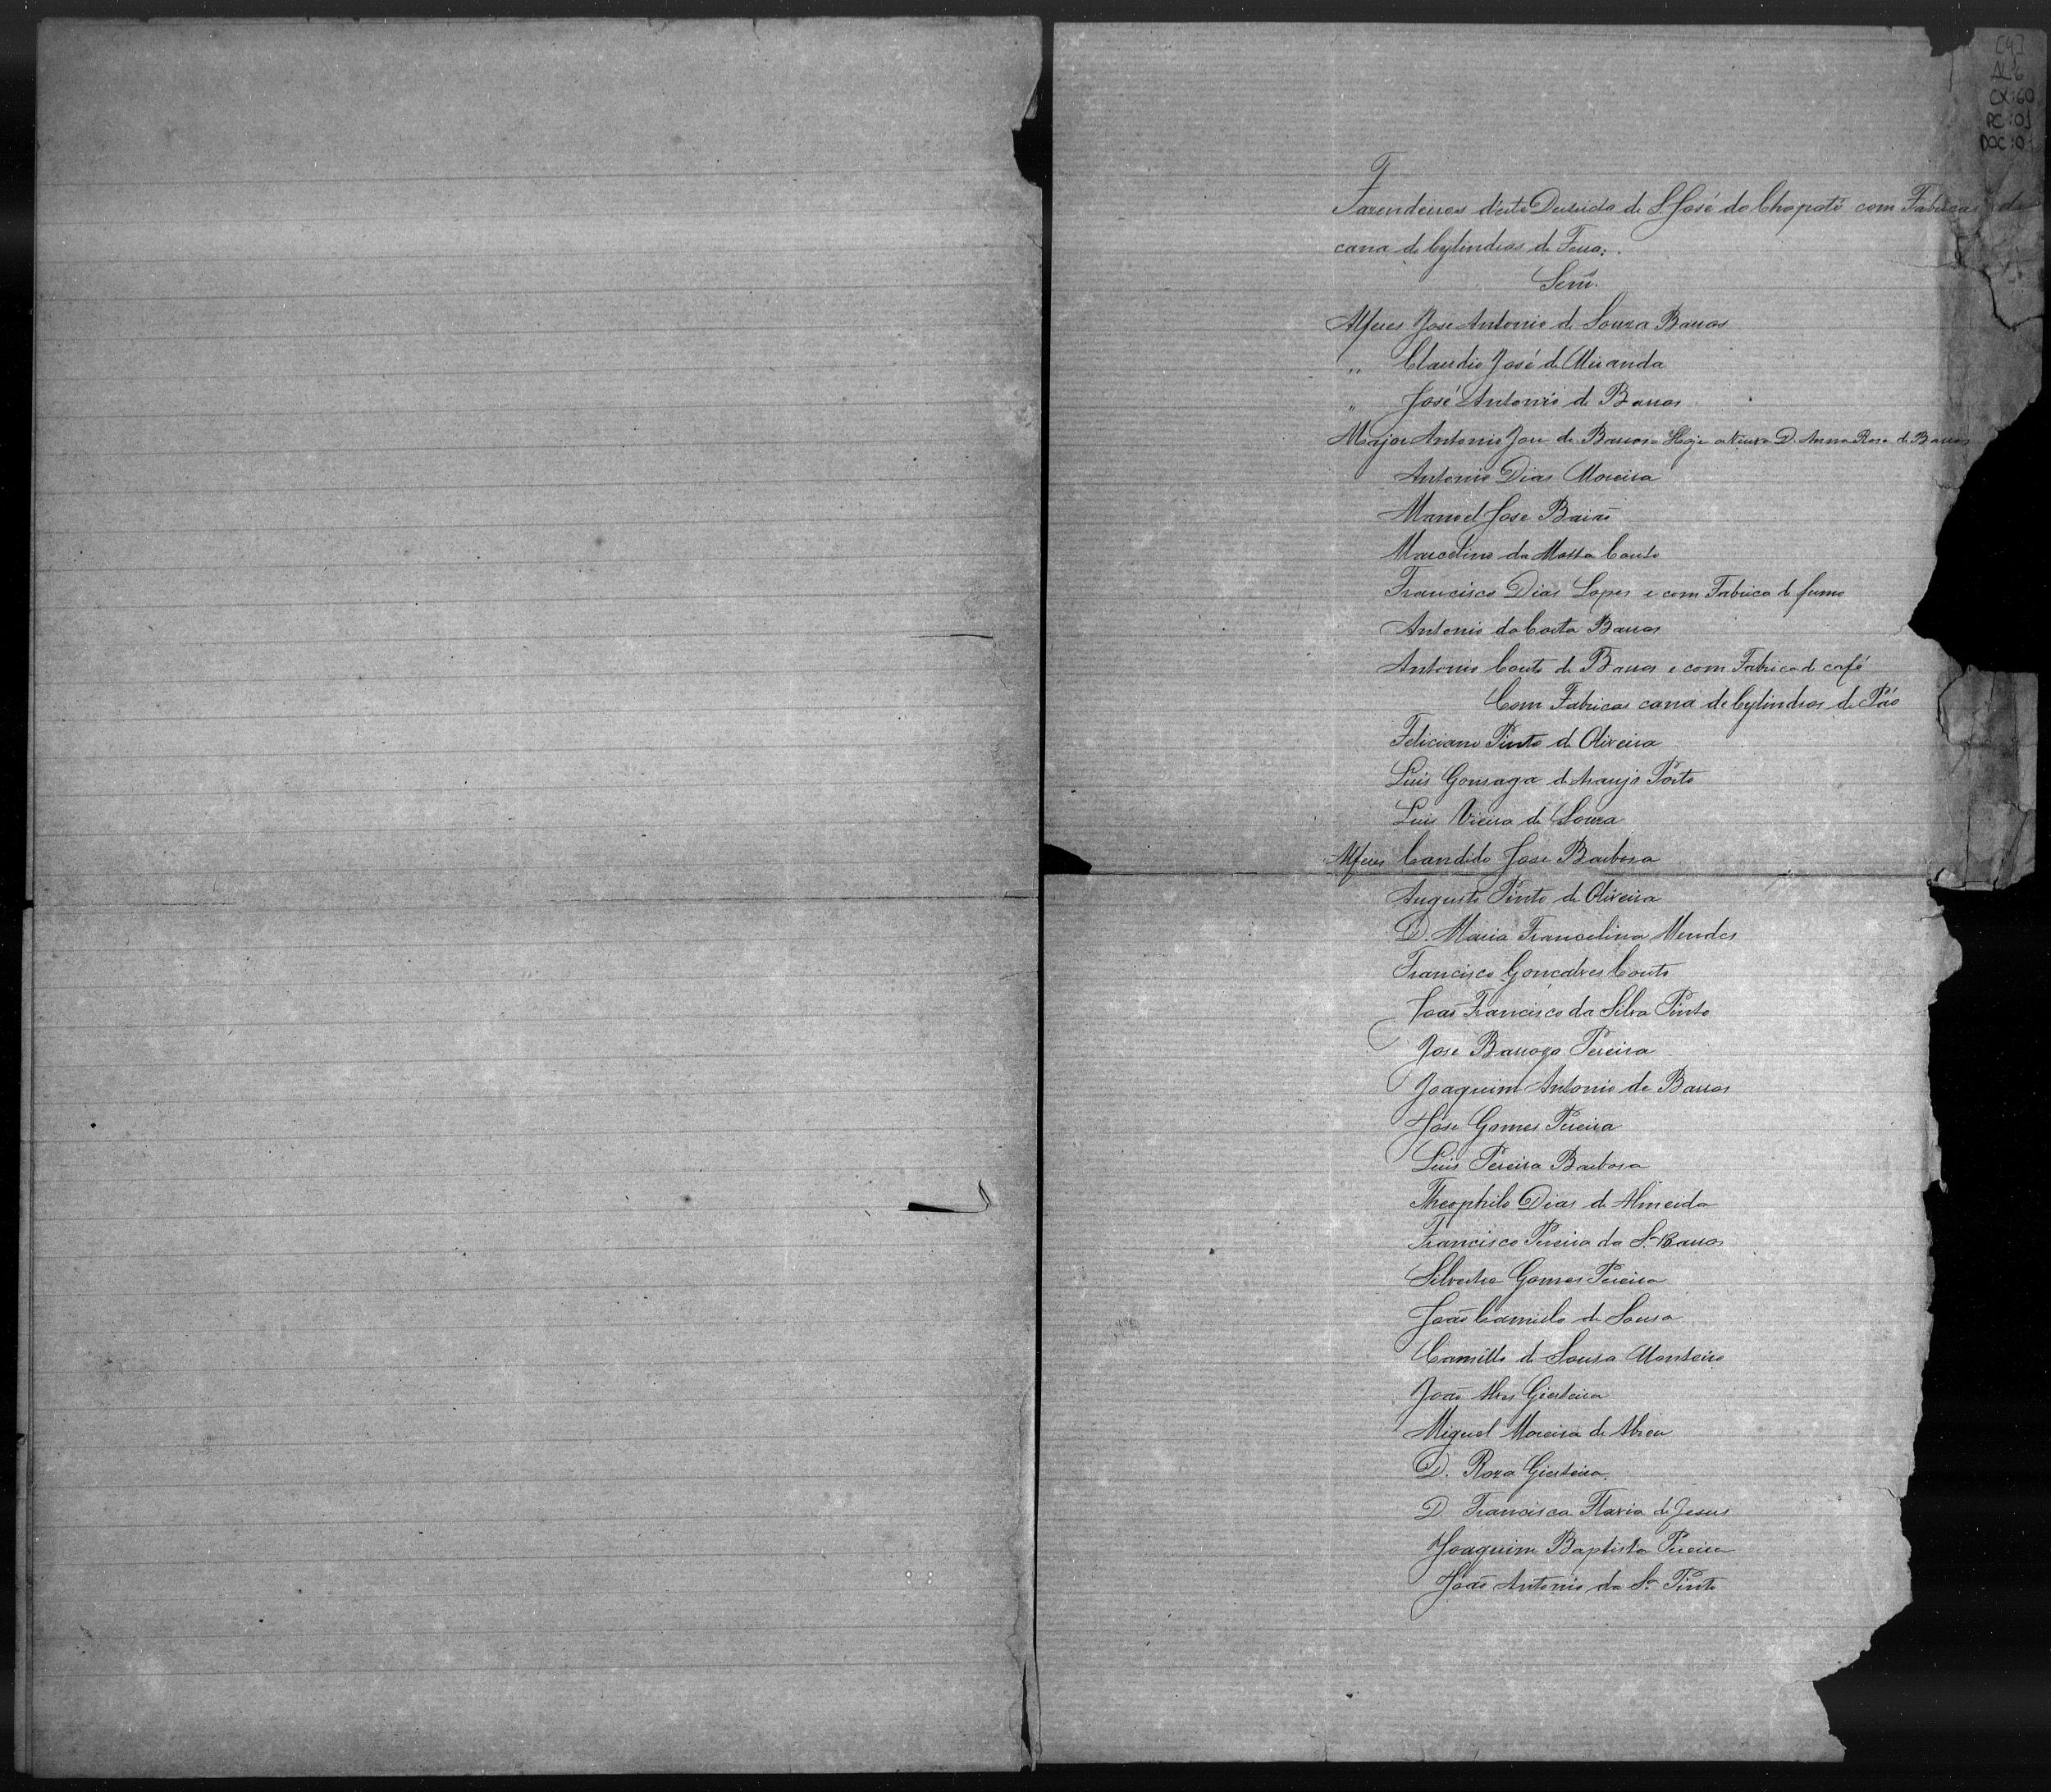 [4]
AL:6
CX:60
PC:01
DOC:0
Fazendeiros d'este Districto de S. José do Chopotó com Fabricas de
cana de Cylindros de Ferro:
Senr.
Alferes José Antonio de Souza Barros
„ Claudio José de Miranda
„ José Antonio de Barros
Major Antonio José de Barros Hoje a Viuva D. Anna Rosa de Barros
Antonio Dias Moreira
Manoel José Baião
Marcelino da Motta Couto
Francisco Dias Lopes e com Fabrica de fumo
Antonio da Costa Barros
Antonio Couto de Barros e com Fabrica de café
Com Fabricas cana de Cylindros de Páo
Feliciano Pinto de Oliveira
Luis Gonzaga de Araujo Porto
Luis Vieira de Souza
Alferes Candido José Barbosa
Augusto Pinto de Oliveira
D. Maria Francelina Mendes
Francisco Gonçalves Couto
João Francisco da Silva Pinto
José Barrozo Pereira
Joaquim Antonio de Barros
José Gomes Pereira
Luis Pereira Barbosa
Theophilo Dias de Almeida
Francisco Pereira da S.ª Barros
Silvestre Gomes Pereira
João Camillo de Sousa
Camillo de Sousa Monteiro
João Alves Giesteira
Miguel Moreira de Abreu
D. Roza Giesteira.
D. Francisca Flavia de Jesus
Joaquim Baptista Pereira
João Antonio da S.ª Pinto